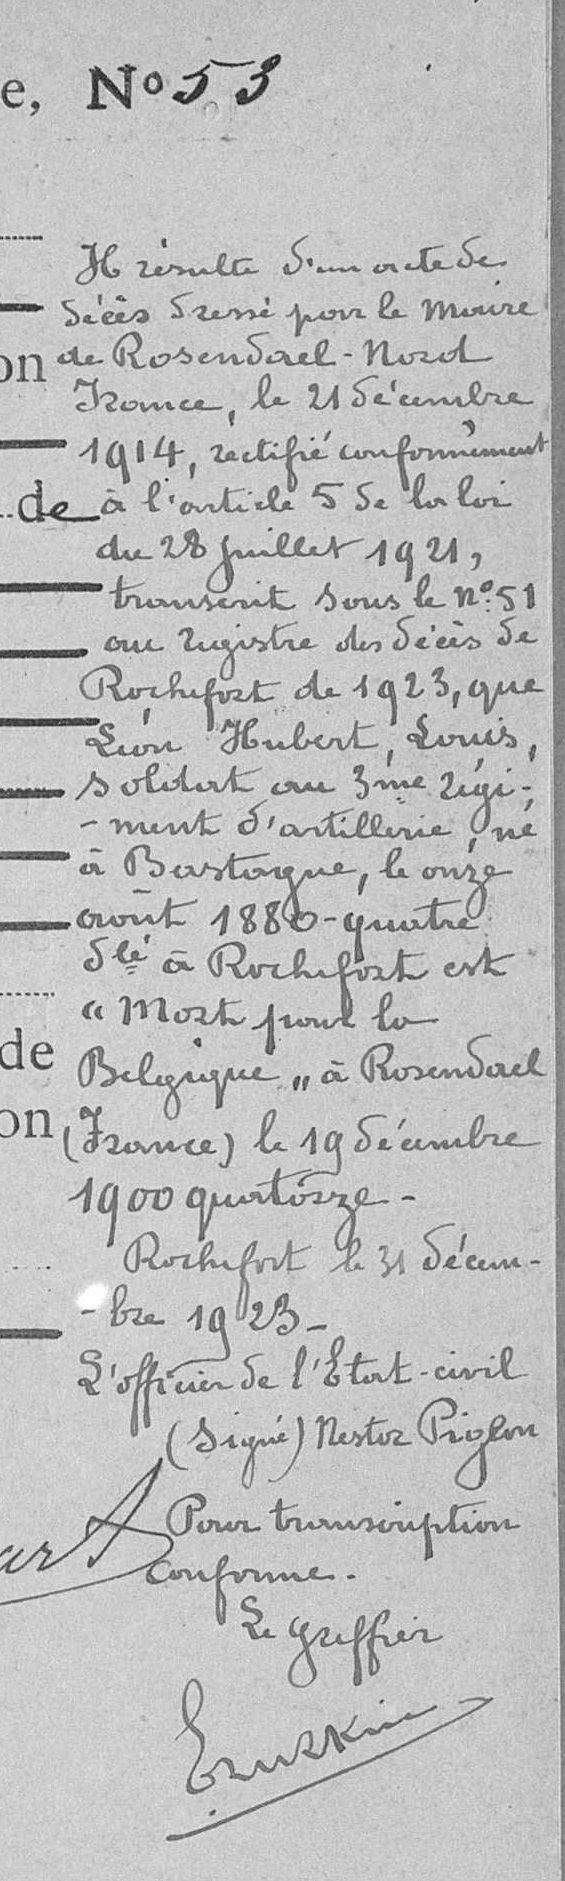 e, No 53
Il résulte d'un acte de
décès dressé par le Maire
on de Rosendael-Nord
France, le 21 décembre
1914, rectifié conformément
de à l'article 5 de la loi
du 28 juillet 1921,
transcrit sous le No. 51
au registre des décès de
Rochefort de 1923, que
Léon Hubert, Louis,
soldat au 3me régi-
-ment d'artillerie, né
à Bastogne, le onze
août 1880-quatre
dlé à Rochefort est
"Mort pour la
de Belgique" à Rosendael
on (France) le 19 décembre
1900 quatorze -
Rochefort le 31 décem-
-bre 1923-
L'officier de l'Etat-civil
(Signé) Nestor Piglon
Pour transcription
conforme.
Le Greffier